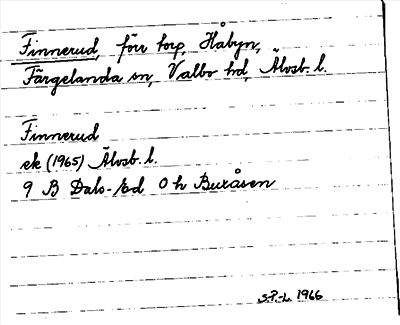 Finnerud, förr torp, Håbyn,
Färgelanda sn, Valbo hd, Älvsb. l.
Finnerud
ek (1965) Älvsb. l.
9 B Dals-Ed 0 h Buråsen
S.P.-L. 1966